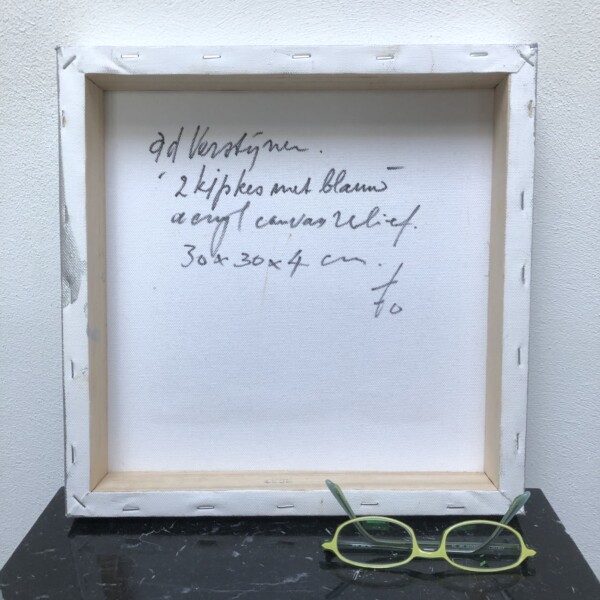 ad Verstijnen.
"2 kijkjes met blauw"
acryl canvas relief.
30 x 30 x 4 cm.